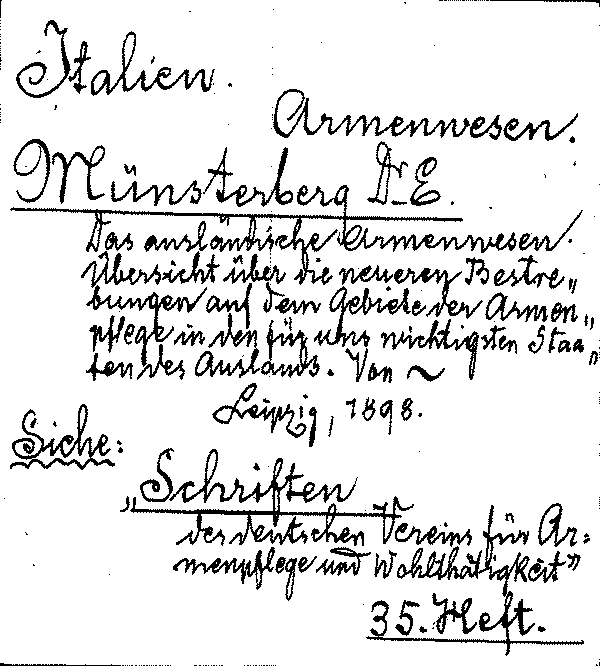 Italien.
Armenwesen.
Münsterberg Dr. E.
Das ausländische Armenwesen.
Übersicht über die neueren Bestre„
bungen auf dem Gebiete der Armen„
pflege in den für uns wichtigsten Staa„
ten des Auslands. Von ~
Leipzig, 1898.
Siehe:
„Schriften
des deutschen Vereins für Ar=
menpflege und Wohlthätigkeit”
35. Heft.